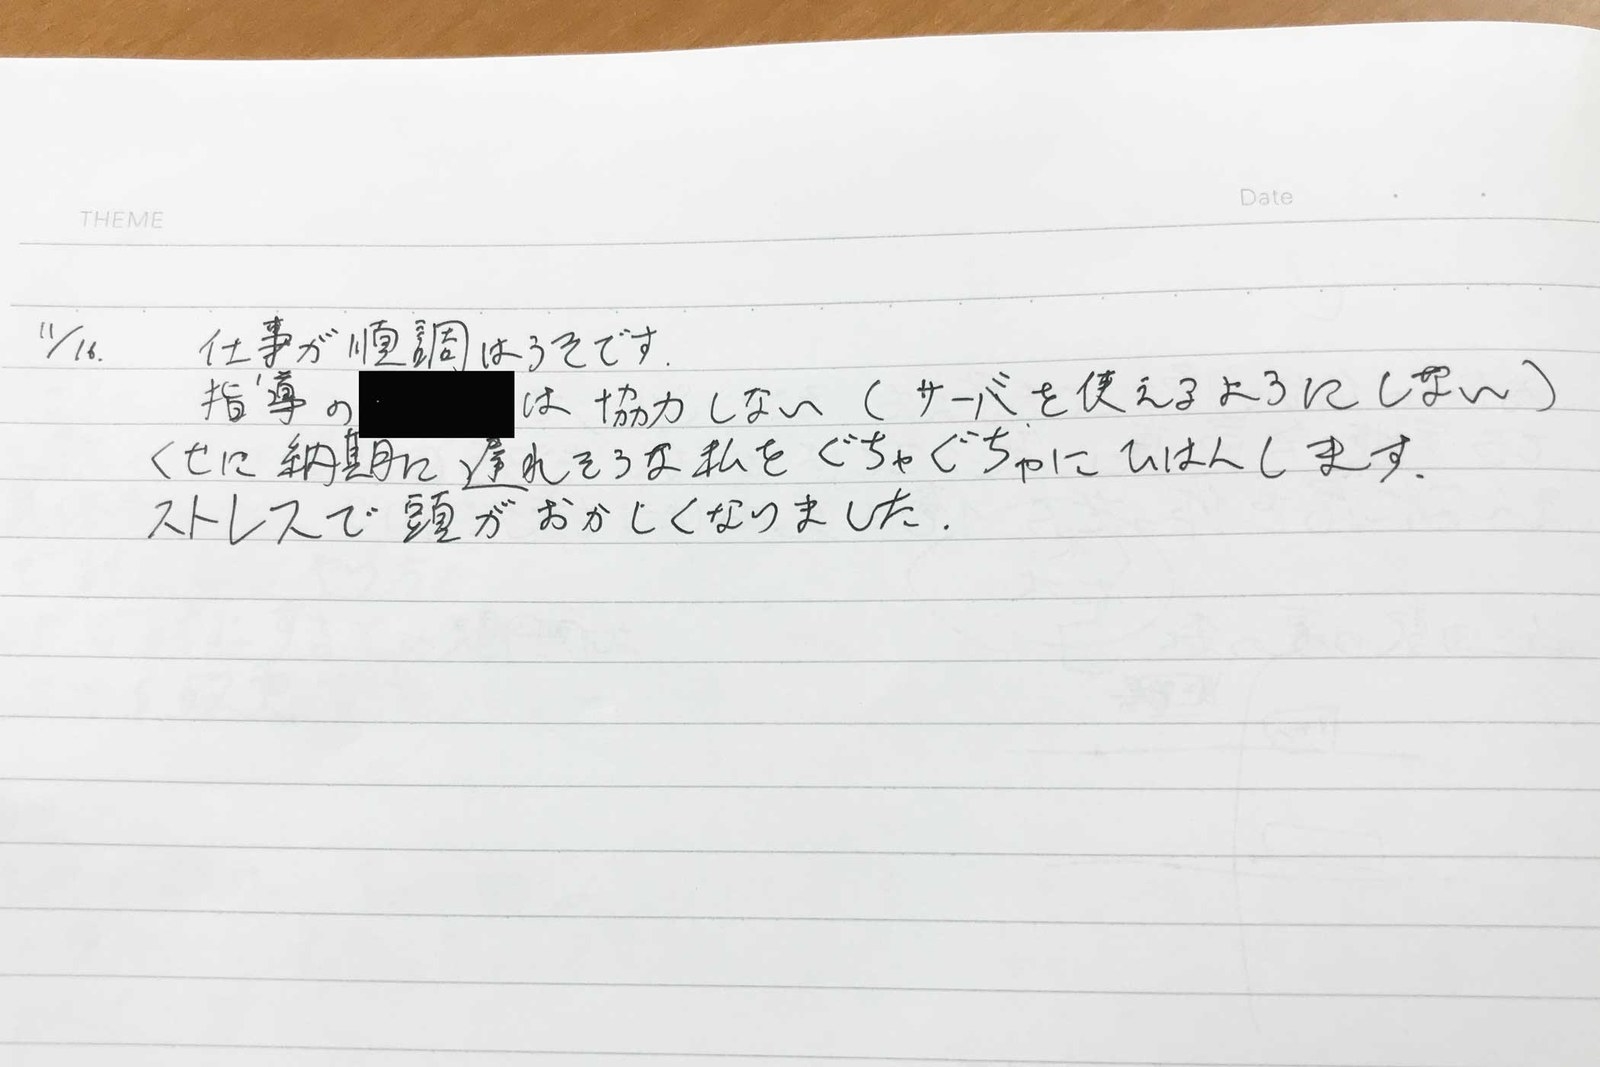 THEME
Date
11/16. 仕事が順調はうそです.
指導の は協力しない (サーバを使えるようにしない)
くせに納期に遅れそうな私をぐちゃぐちゃにひはんします.
ストレスで頭がおかしくなりました.